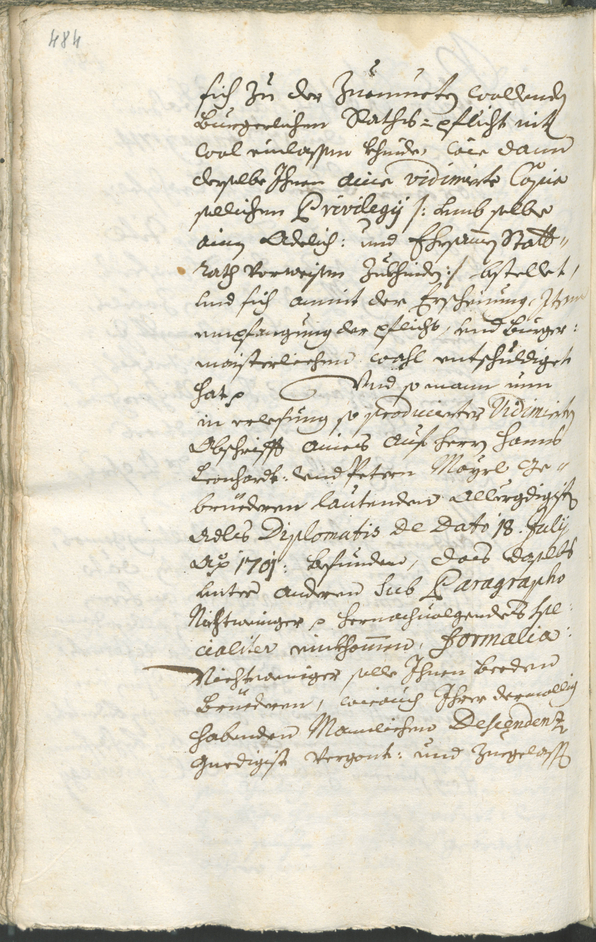 484
sich zu der Zuemueten wollenden
Burgerlichen Raths=pflicht nit
wol einlassen khunde, wie dann
derselbe Ihnen aine vidimierte Copia
sollichen Privilegy /: umb selbe
ainem Adelich: und Ehrsamen Statt=
rath verweisen zukhinden :/ bestellet,
und sich amit der Erscheinung,
empfangung der pflicht, und Burger:
maisterlichen wahl entschuldiget
hat Und so mann nun
in erlesung so producierter Vidimierten
Abschrifft aines auf Herrn Hanns
Leonhardt: und Petern Mayrl Ge=
brüedern lautenden Allergdigisten
Adls Diplomatis de dato 18. July
Ao 1701: befunden, dass
unter anderen sub Paragrapho
Nichtweniger hernachvolgendes spe:
cialiter einkhommen, formalia:
Nichtweniger solle Ihnen beeden
Brüedern, wieauch Ihrer
habenden Manlichen Descendenz
gnedigist vergont: und zuegelassen